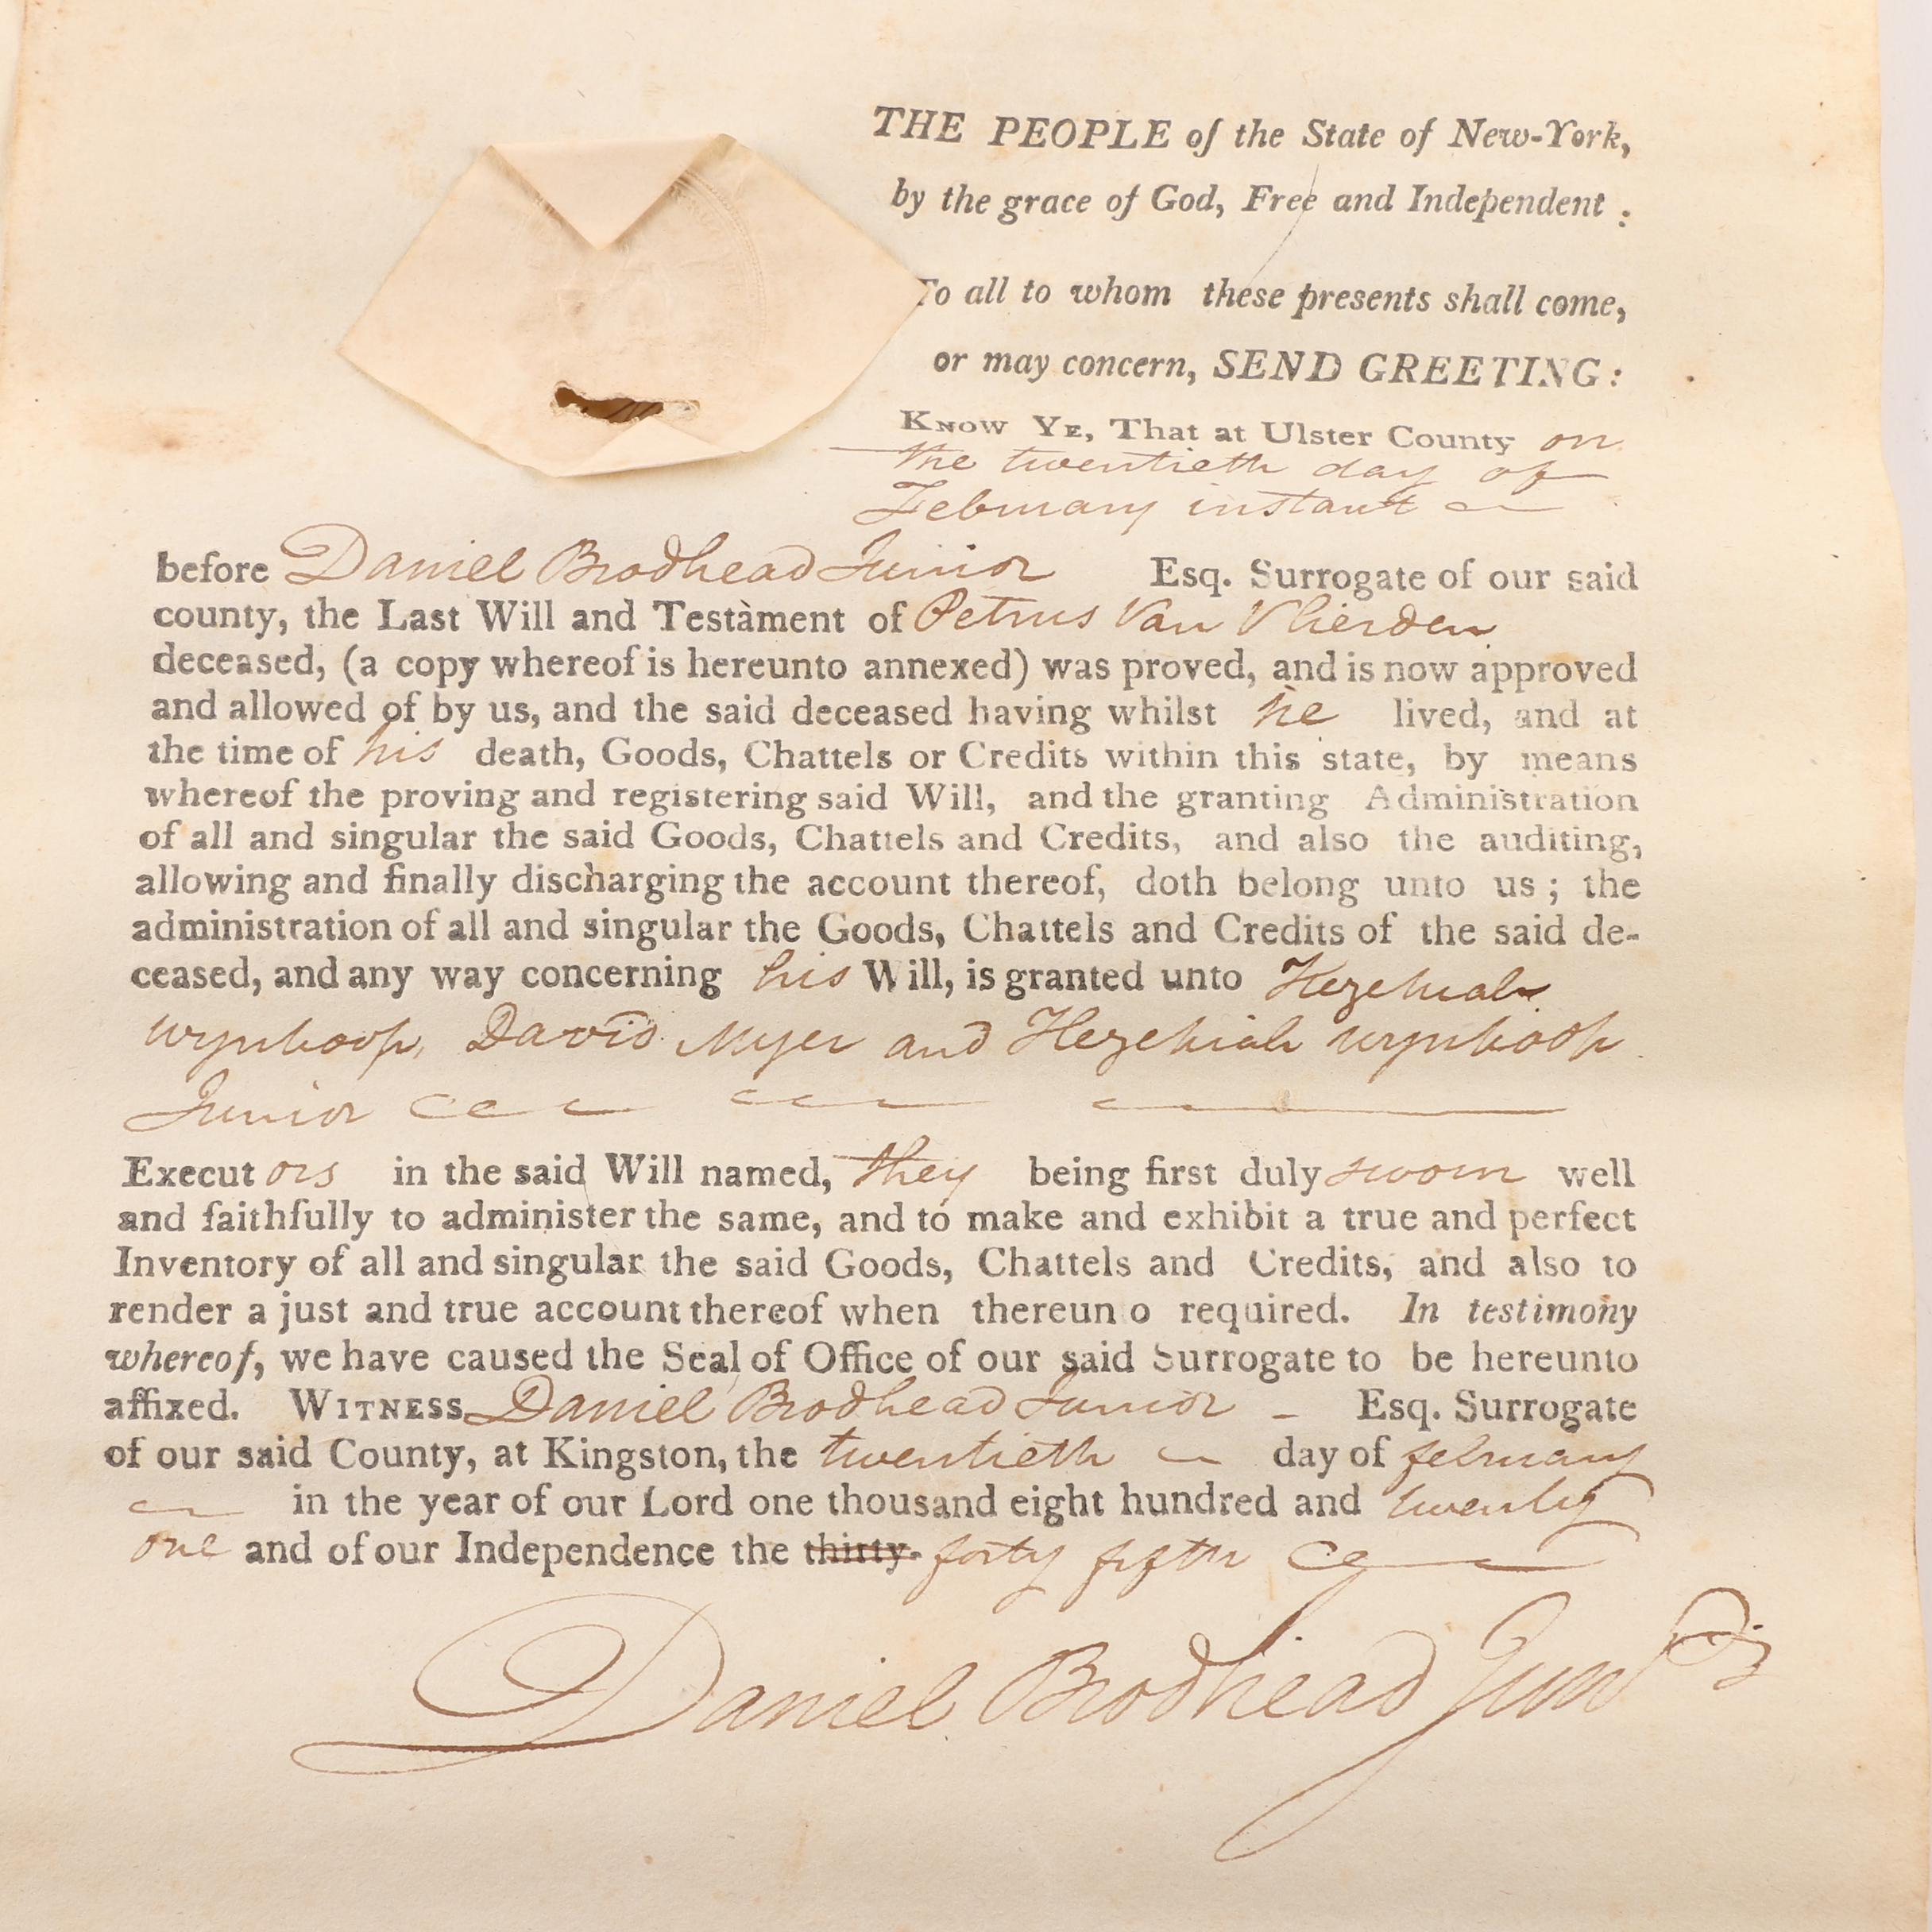 THE PEOPLE of the State of New-York,
by the grace of God, Free and Independent :
To all to whom these presents shall come,
or may concern, SEND GREETING :
KNOW YE, That at Ulster County on
the twentieth day of
February instant
before Daniel Brodhead Junior Esq. Surrogate of our said
county, the Last Will and Testament of Petrus Van Vlierden
deceased, (a copy whereof is hereunto annexed) was proved, and is now approved
and allowed of by us, and the said deceased having whilst he lived, and at
the time of his death, Goods, Chattels or Credits within this state, by means
whereof the proving and registering said Will, and the granting Administration
of all and singular the said Goods, Chattels and Credits, and also the auditing,
allowing and finally discharging the account thereof, doth belong unto us ; the
administration of all and singular the Goods, Chattels and Credits of the said de-
ceased, and any way concerning his Will, is granted unto Hezekiah
Wynkoop, David Myer and Hezekiah Wynkoop
Junior
Executors in the said Will named, they being first duly sworn well
and faithfully to administer the same, and to make and exhibit a true and perfect
Inventory of all and singular the said Goods, Chattels and Credits, and also to
render a just and true account thereof when thereun o required. In testimony
whereof, we have caused the Seal of Office of our said Surrogate to be hereunto
affixed. WITNESS Daniel Brodhead Junior - Esq. Surrogate
of our said County, at Kingston, the twentieth day of february
in the year of our Lord one thousand eight hundred and twenty
one and of our Independence the thirty- forty fifth
Daniel Brodhead Junr